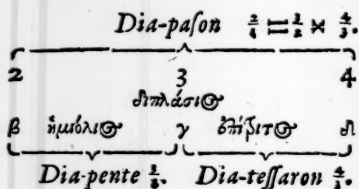 Dia-paſon
2 3 4
διπλάσιος
β ἡμιόλιος γ ἐπίτριτος δ
Dia-pente Dia-teſſaron 4/3.